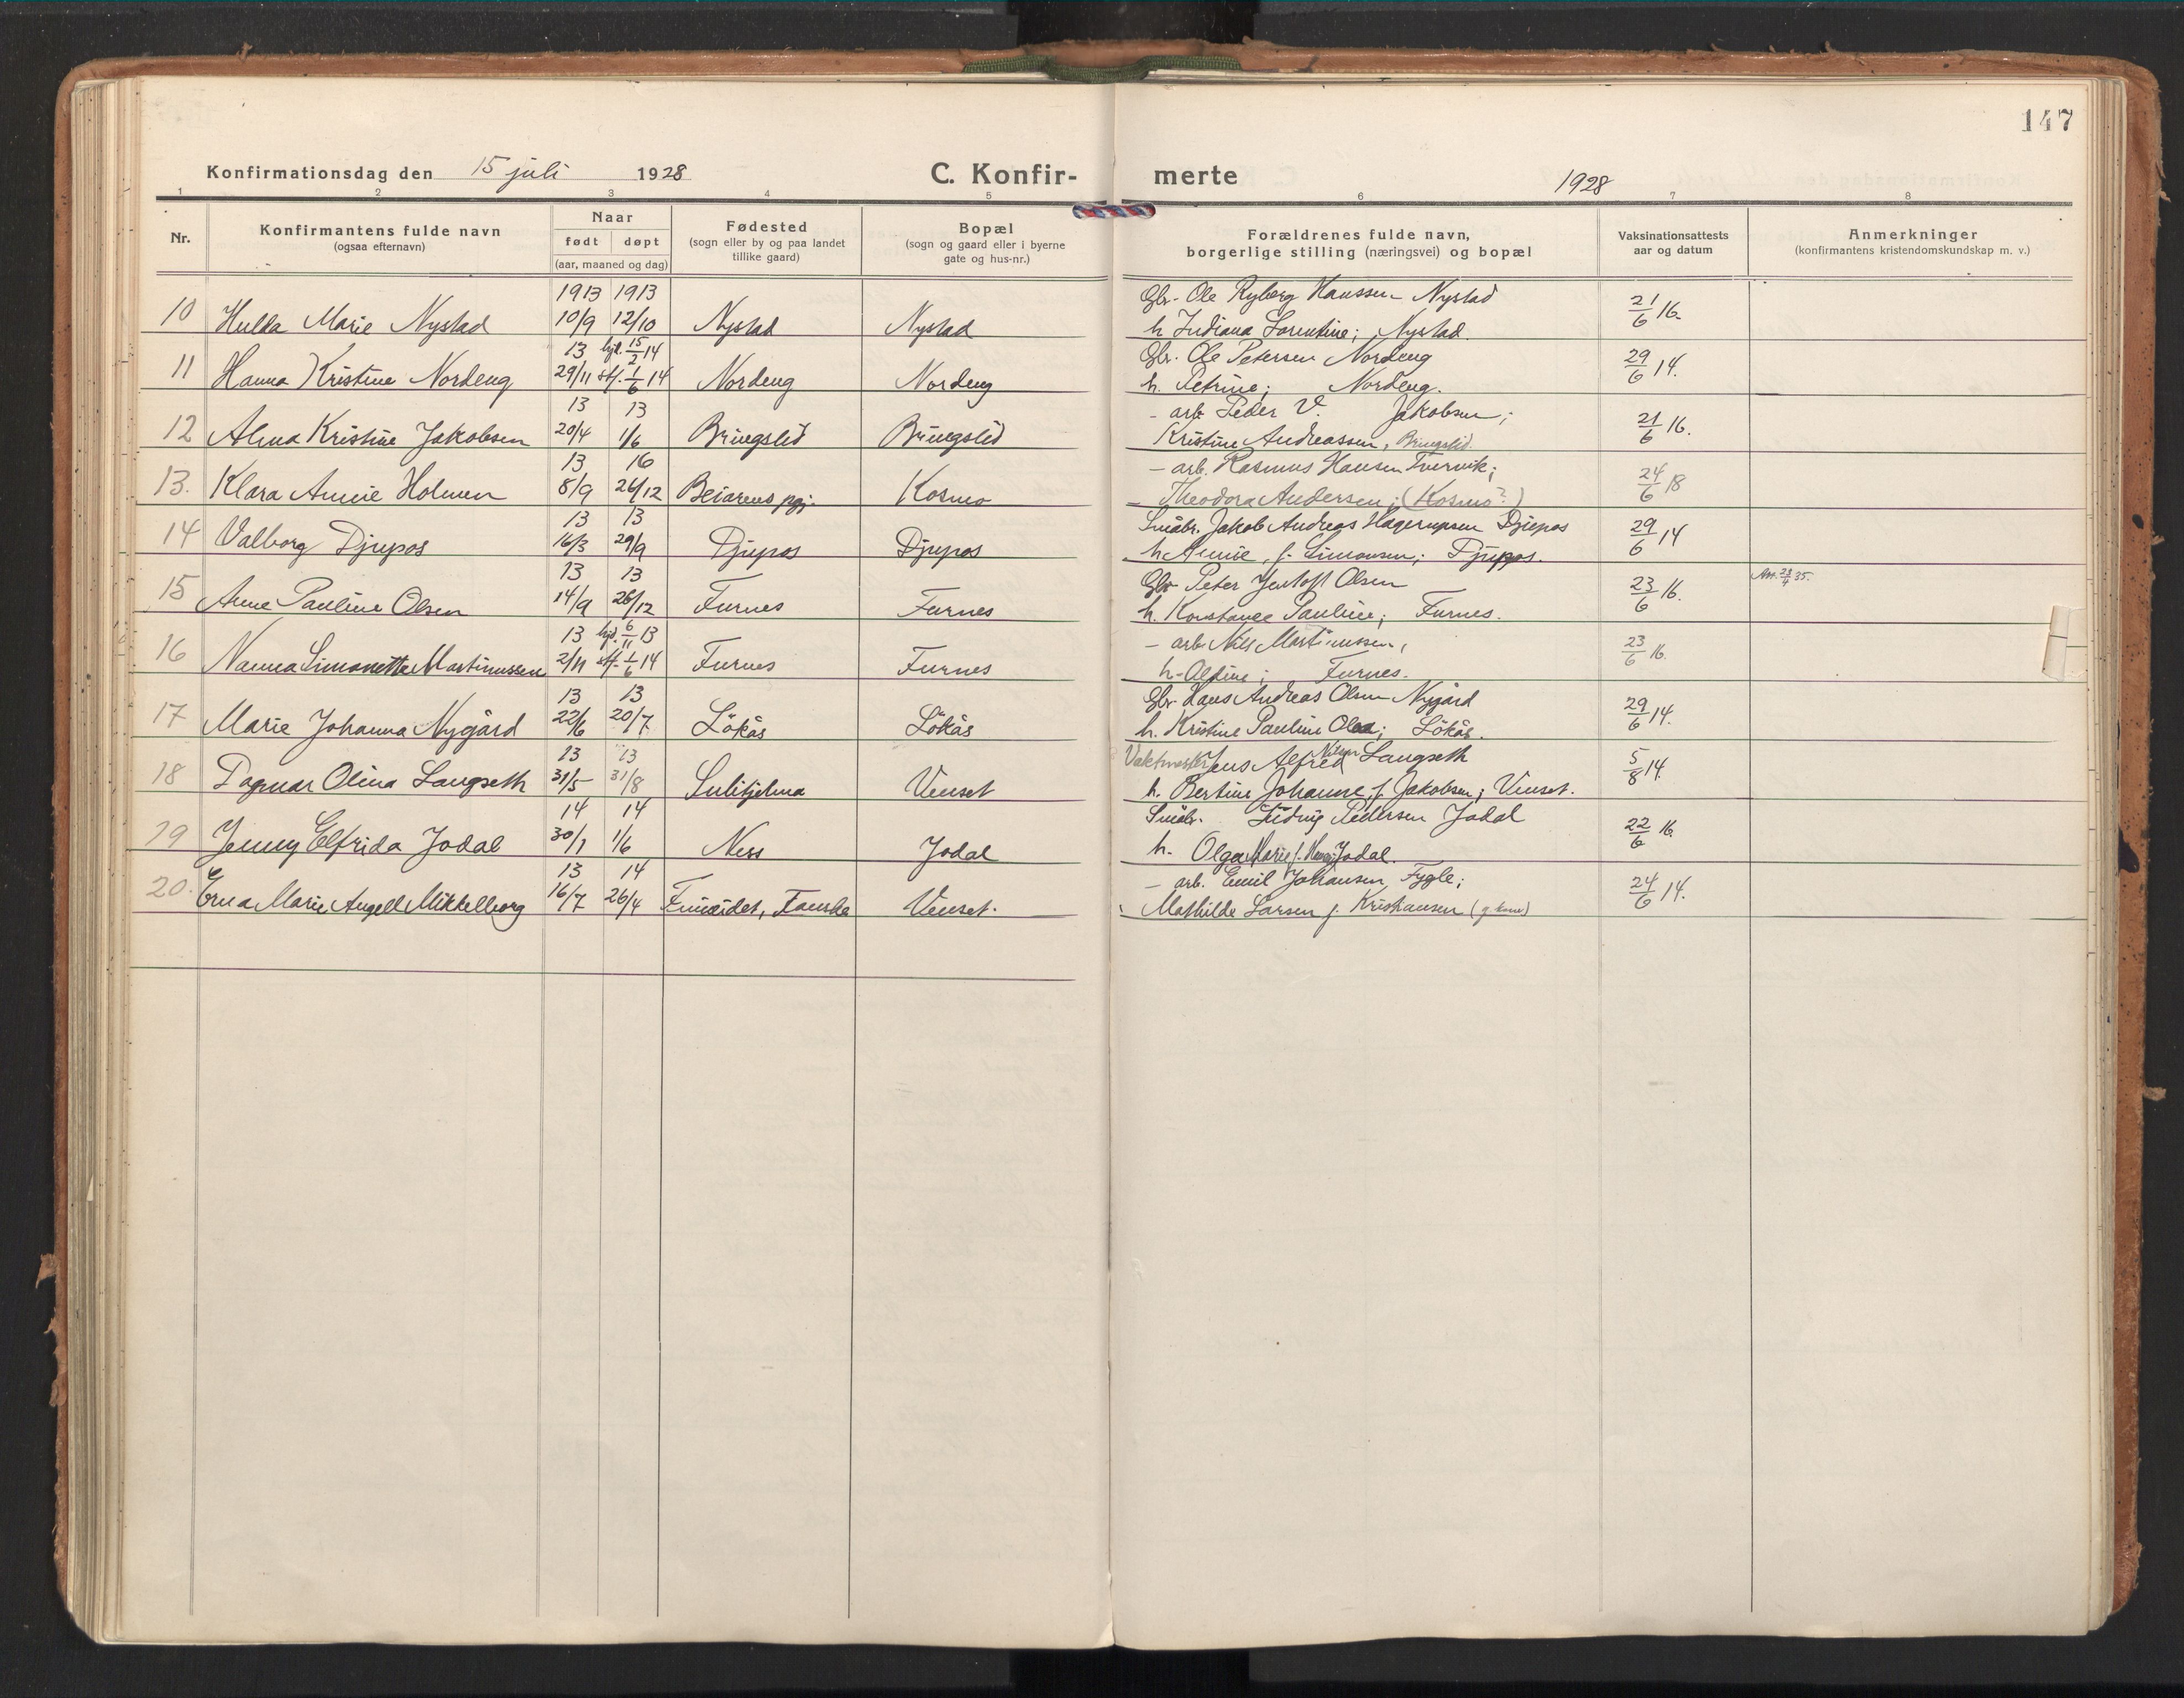 147
Konfirmationsdag den 15 juli 1928 C. Konfirmerte 1928
1 2 3 4 5 6 7 8
Nr.
Konfirmantens fulde navn
(ogsaa efternavn)
Naar
født døpt
(aar, maaned og dag)
Fødested
(sogn eller by og paa landet
tillike gaard)
Bopæl
(sogn og gaard eller i byerne
gate og hus-nr.)
Forældrenes fulde navn,
borgerlige stilling (næringsvei) og bopæl
Vaksinationsattests
aar og datum
Anmerkninger
(konfirmantens kristendomskundskap m. v.)
1913 1913 Gbr. Ole Ryberg Hanssen Nystad
10 Hulda Marie Nystad 10/9 12/10 Nystad Nystad h. Indiana Lorentine; Nystad. 21/6 16.
13 hjd. 15/2 14 Gbr. Ole Petersen Nordeng
11 Hanna Kristine Nordeng 29/11 stf. 1/6 14 Nordeng Nordeng h. Petrine; Nordeng. 29/6 14.
13 13 - arb. Peder V. Jakobsen;
12 Alma Kristine Jakobsen 20/4 1/6 Bringslid Bringslid Kristine Andreassen, Bringslid 21/6 16.
13 16 - arb. Rasmus Hansen Tvervik;
13. Klara Annie Holmen 8/9 26/12 Beiarens pgj. Kosmo Theodora Andersen; (Kosmo?) 24/6 18
13 13 Småbr. Jakob Andreas Hagerupsen Djupos
14 Valborg Djupos 16/3 29/9 Djupos Djupos h. Annie, f. Simonsen; Djupos. 29/6 14
13 13 Gbr Peter Jentoft Olsen
15 Arne Pauline Olsen 14/9 26/12 Furnes Furnes h. Konstance Pauline; Furnes. 23/6 16. Att. 23/4 35.
13 hjd. 6/11 13 - arb. Nils Martinussen,
16 Nanna Simonetta Martinussen 2/11 stf. 1/6 14 Furnes Furnes h. Aldine; Furnes. 23/6 16.
13 13 Gbr. Hans Andreas Olsen Nygård
17 Marie Johanna Nygård 22/6 20/7 Lökås Lökås h. Kristine Pauline Olea; Lökås. 29/6 14.
13 13 Vaktmester Jens Alfred Nilsen Langseth
18 Dagmar Olina Langseth 31/5 31/8 Sulitjelma Venset h. Bertine Johanne, f. Jakobsen; Venset. 5/8 14.
14 14 Småbr. Ludvig Pedersen Jodal
19 Jenny Elfrida Jodal 30/1 1/6 Ness Jodal h. Olga Marie f. Jodal. 22/6 16
13 14 - arb. Emil Johansen Fygle;
20. Erna Marie Angell Mikkelborg 16/7 26/4 Finneidet, Fauske Venset. Mathilde Larsen f. Kristiansen 24/6 14.